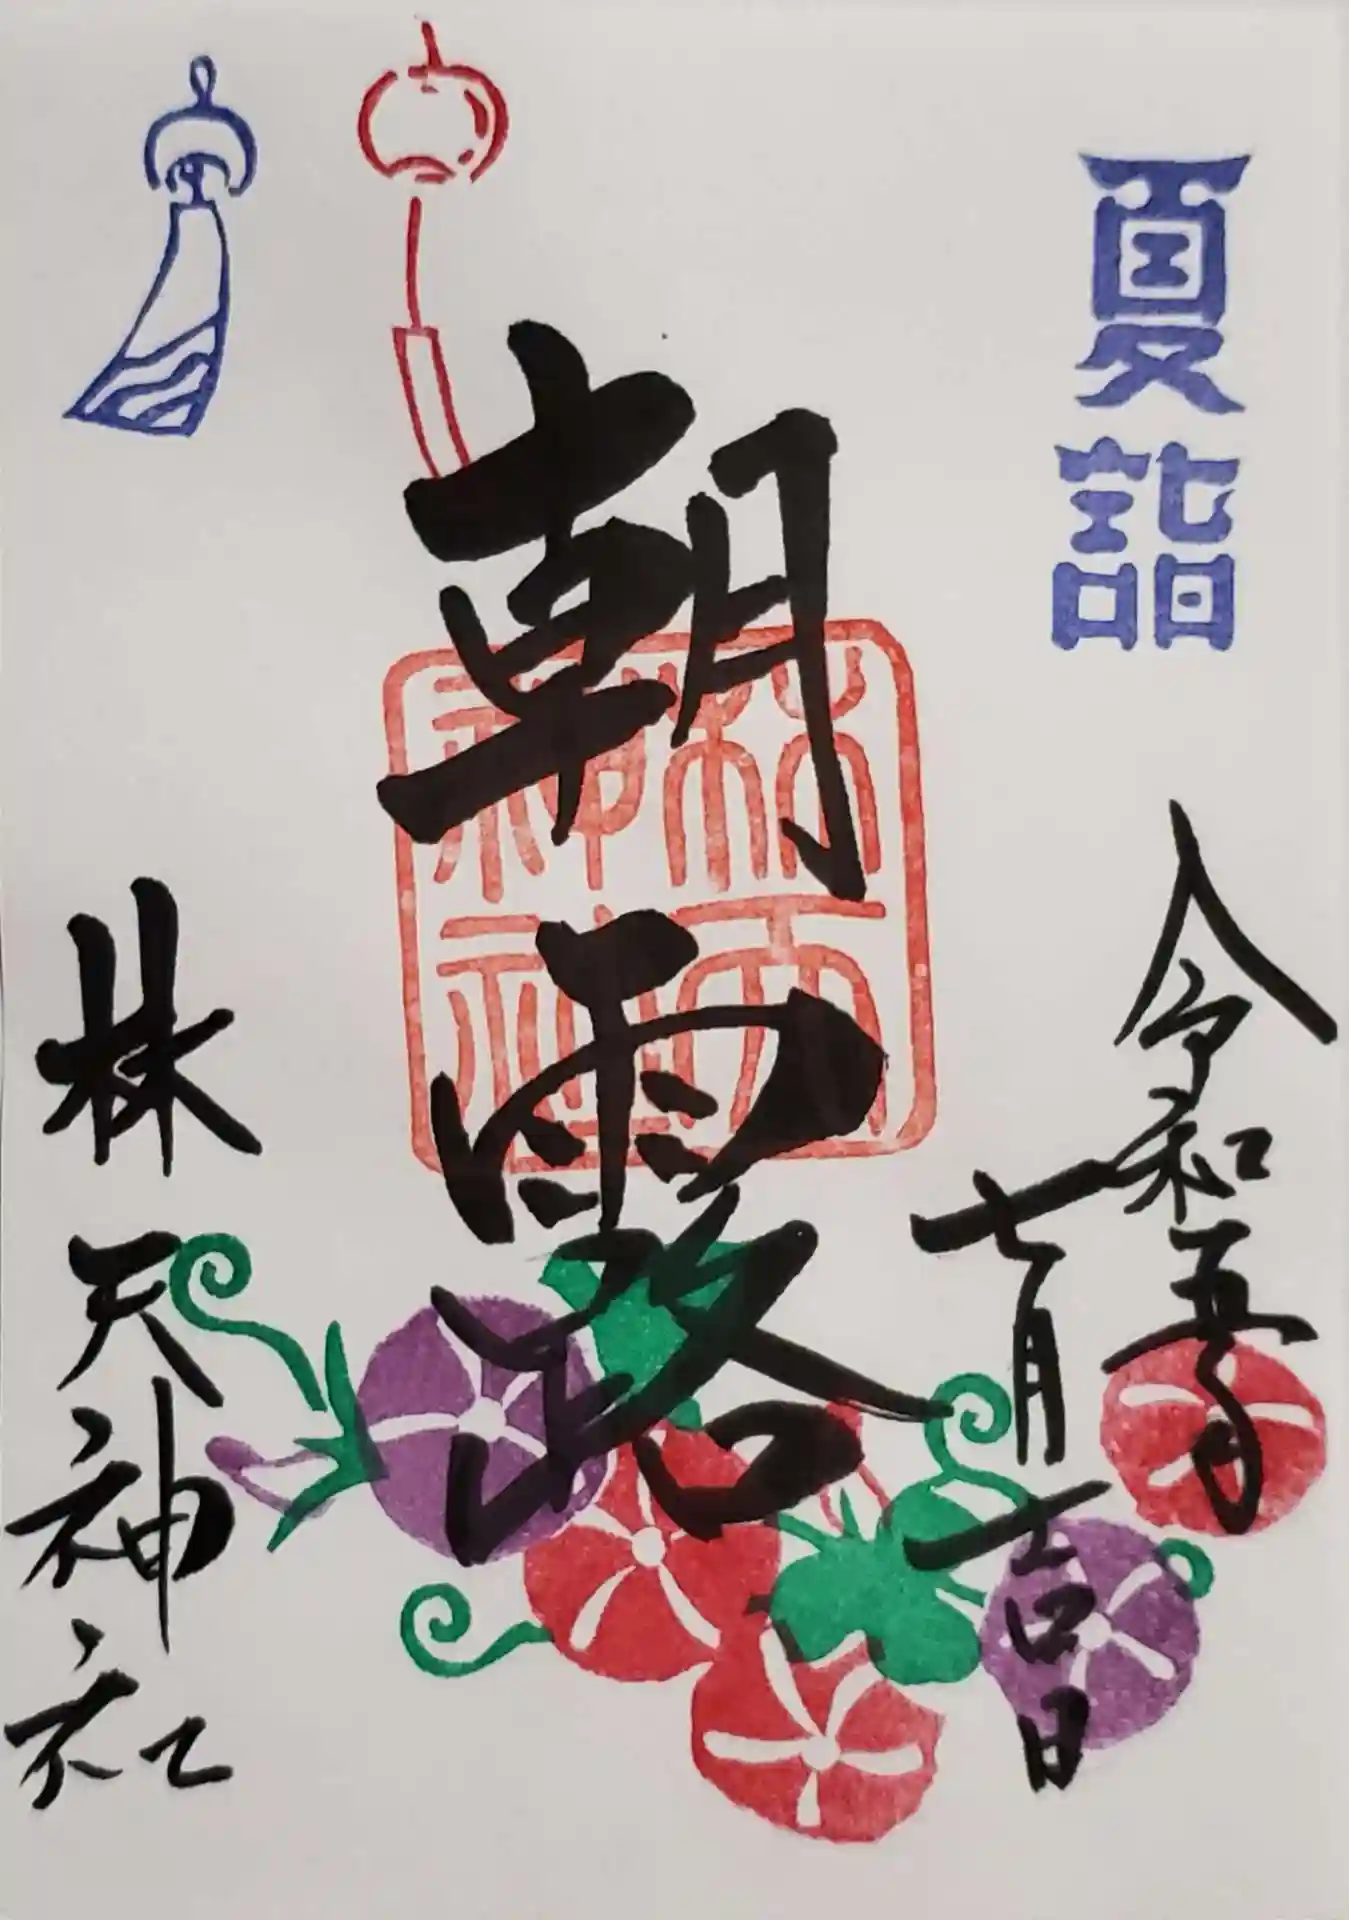 夏詣
令和五年
七月吉日
朝露
林天
神社
林天神社